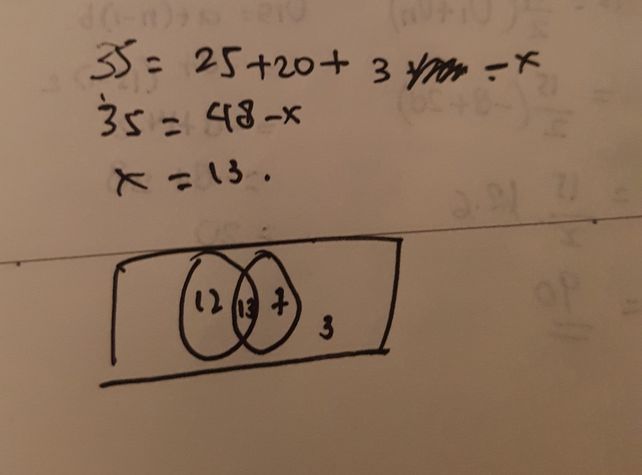 35 = 25+20+ 3 -x
35 = 48-x
x = 13.
12 13 7
3